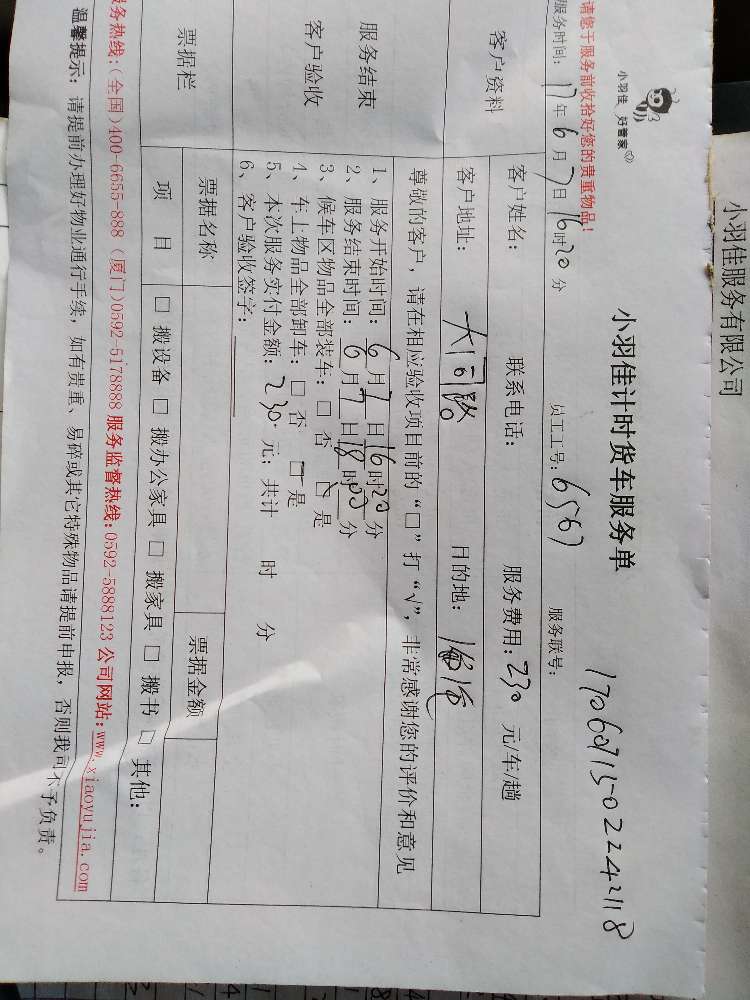 小羽佳服务有限公司
小羽佳 好管家
小羽佳计时货车服务单
170607150224218
请您于服务前收拾好您的贵重物品!
服务时间: 17年6月7日16时20分 员工工号: 6567 服务联号:
客户资料
客户姓名: 联系电话: 服务费用: 230 元/车/趟
客户地址: 大同路 目的地:
尊敬的客户, 请在相应验收项目前的“□”打“√”, 非常感谢您的评价和意见
服务结束
客户验收
1、服务开始时间: 6月7日16时20分
2、服务结束时间: 6月7日18时00分
3、候车区物品全部装车: □ 否 □ 是
4、车上物品全部卸车: □ 否 □ 是
5、本次服务实付金额: 230 元; 共计 时 分
6、客户验收签字:
票据栏
票据名称 票据金额
项 目 □ 搬设备 □ 搬办公家具 □ 搬家具 □ 搬书 □ 其他:
服务热线:(全国)400-6655-888 (厦门)0592-5178888 服务监督热线:0592-5888123 公司网站:www.xiaoyujia.com
温馨提示: 请提前办理好物业通行手续, 如有贵重、易碎或其它特殊物品请提前申报, 否则我司不予负责。